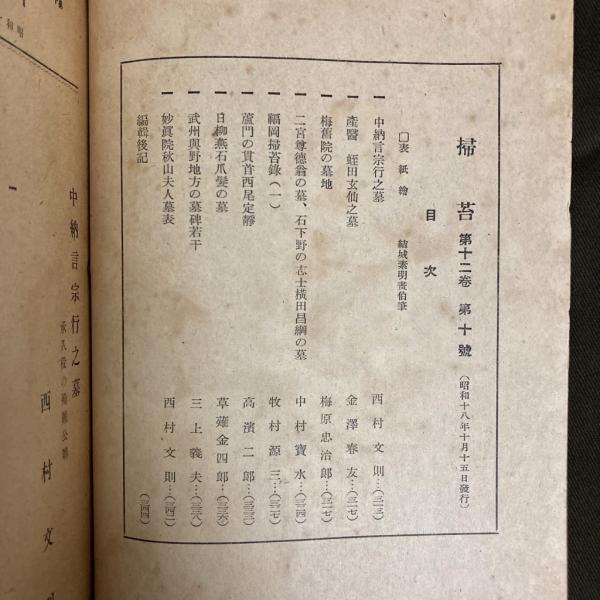 掃苔 第十二卷 第十號 (昭和十八年十月十五日發行)
目次
□表紙繪 結城素明畫伯筆
一 中納言宗行之墓 西村文則…(三一三)
一 產醫 蛭田玄仙之墓 金澤春友…(三一七)
一 梅舊院の墓地 梅原忠治郎…(三一七)
一 二宮尊德翁の墓、石下野の志士橫田昌綱の墓 中村寶水…(三二四)
一 福岡掃苔錄(一) 牧村源三…(三二七)
一 蘆門の貫首西尾定靜 高濱二郎…(三三三)
一 日柳燕石爪髮の墓 草薙金四郎…(三三六)
一 武州與野地方の墓碑若干 三上義夫…(三三八)
一 妙眞院秋山夫人墓表 西村文則…(三四二)
編輯後記 (三四四)
中納言宗行之墓
西村文則
昭和
一